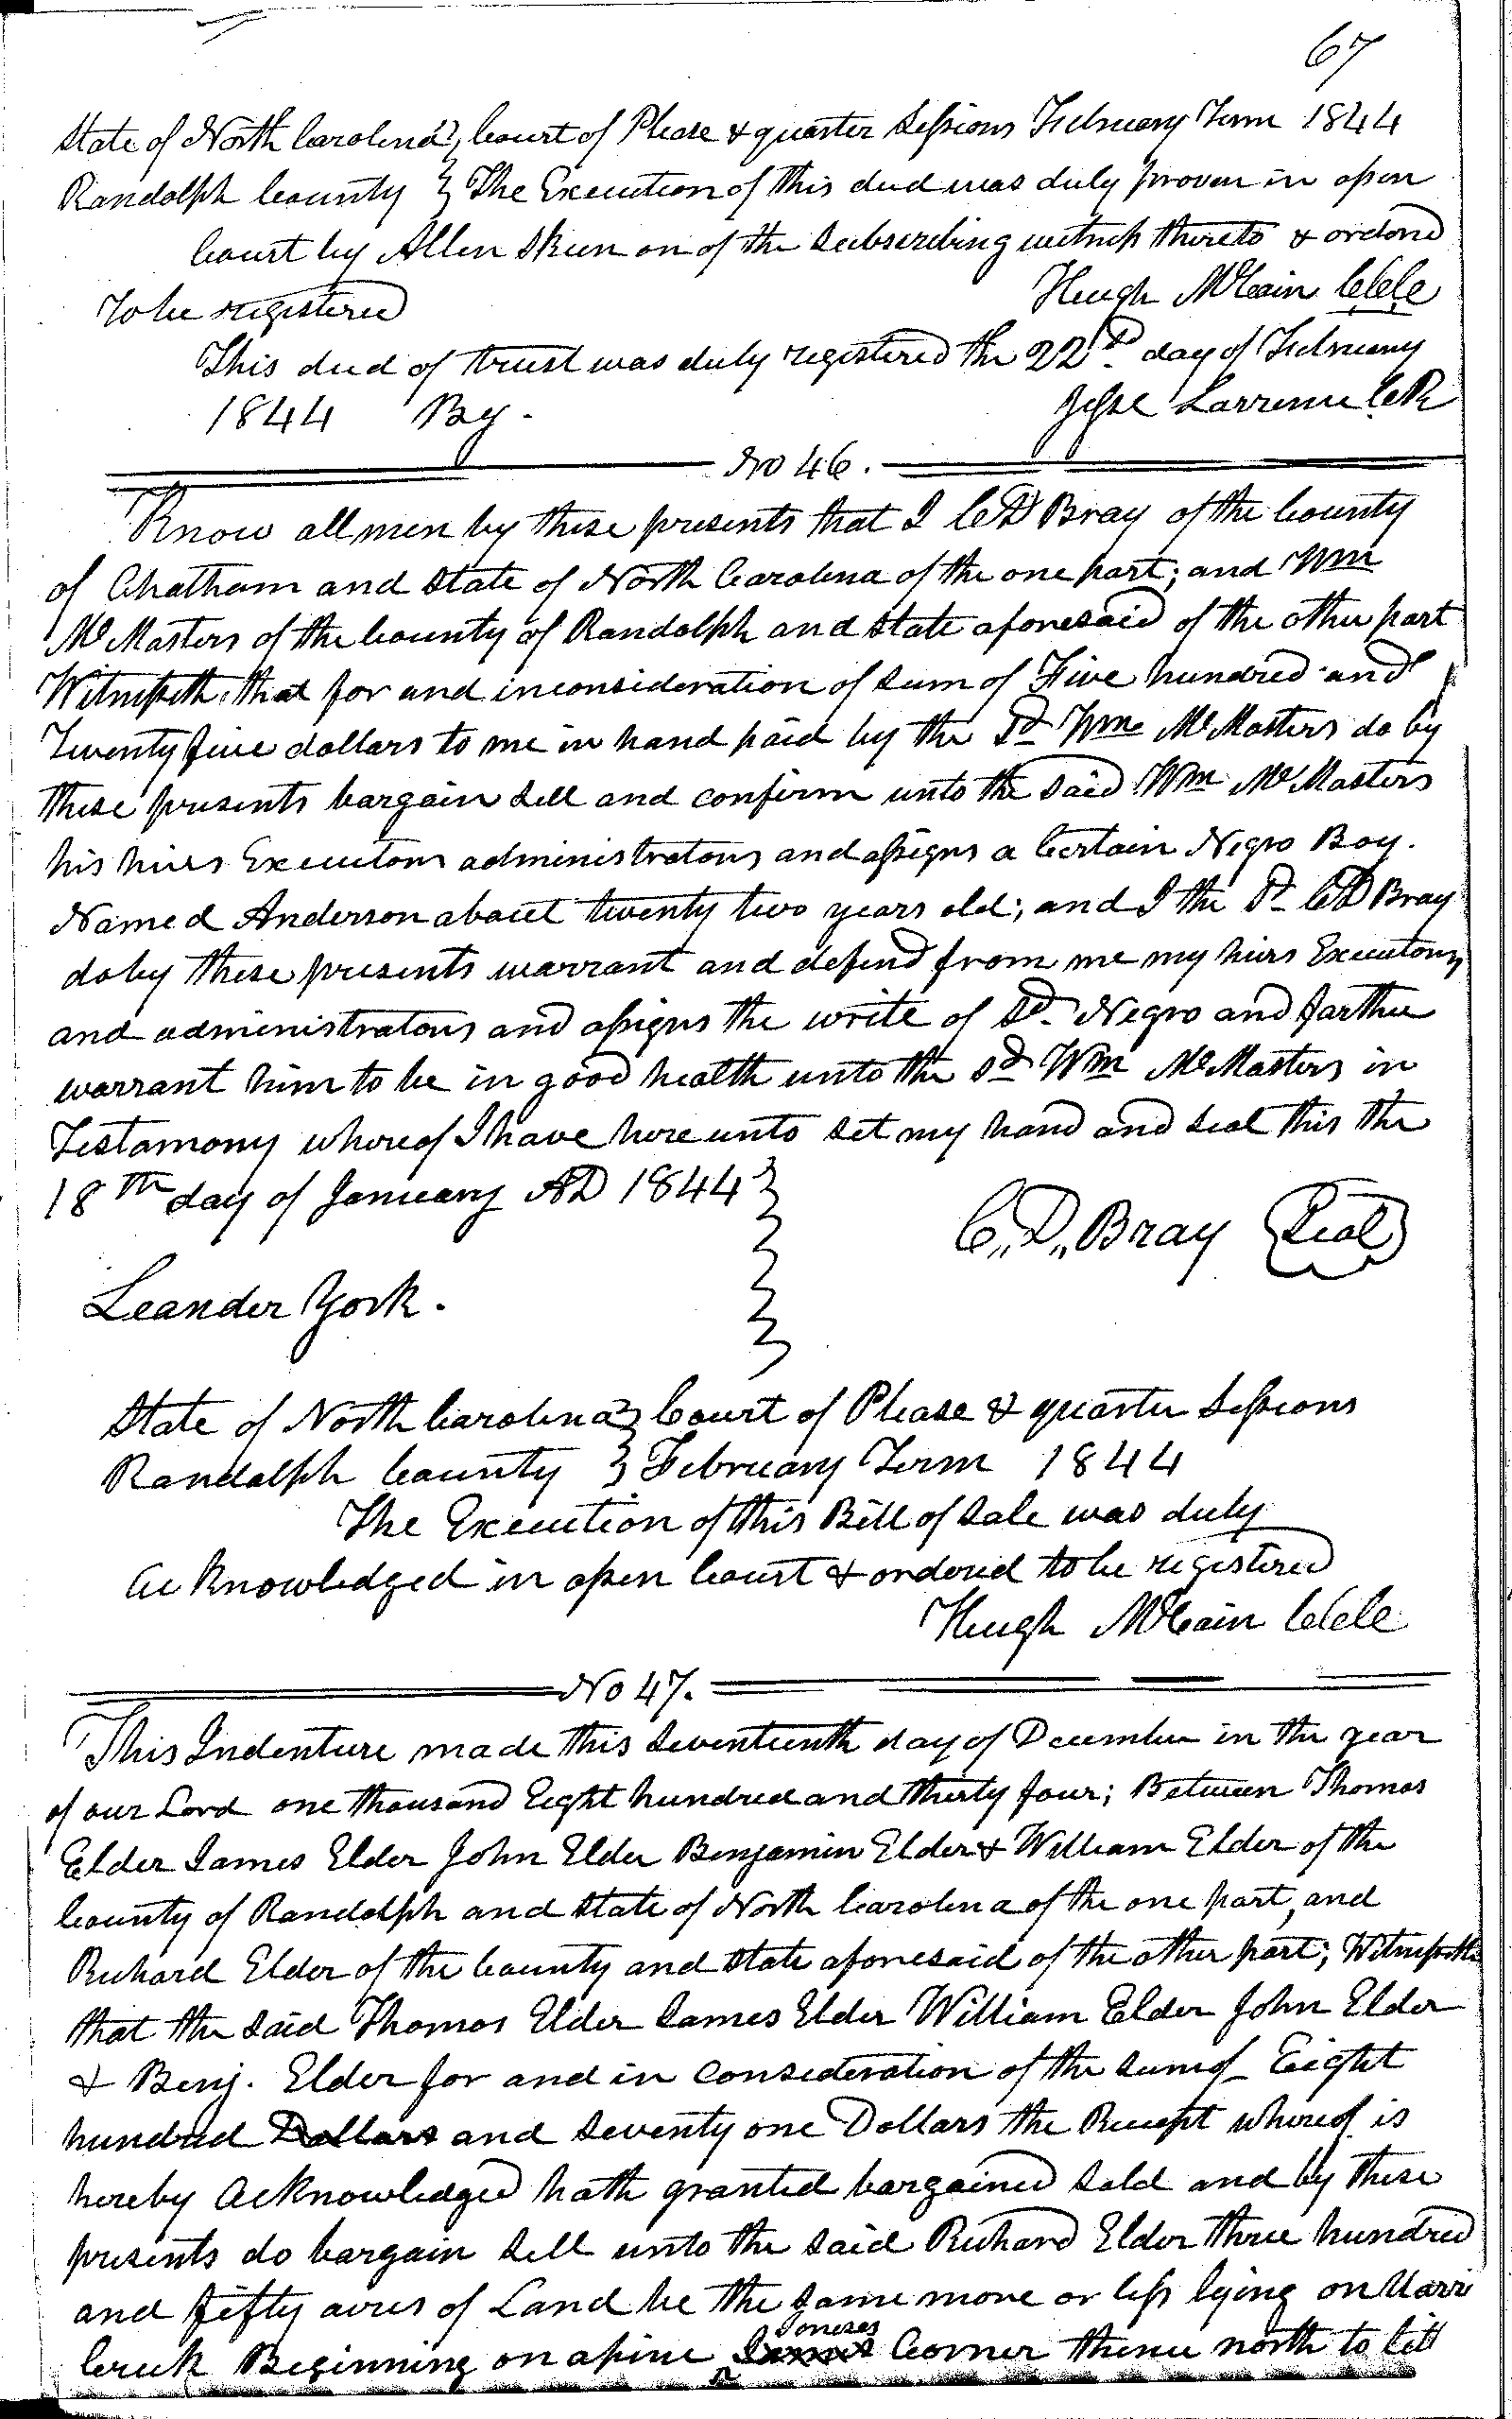 67
State of North Carolina } Court of Please & quarter Sessions February Term 1844
Randolph County } The Execution of this deed was duly proven in open
Court by Allen Skeen on of the Subscribing witness thereto & ordord
To be registered Hugh McCain CCCC
This deed of trust was duly registered the 22d day of February
1844 By. Jesse Larrence C.R
No 46.
Know all men by these presents that I C D Bray of the County
of Chatham and State of North Carolina of the one part; and Wm
McMasters of the County of Randolph and State aforesaid of the other part
Witnesseth that for and inconsideration of Sum of Five hundred and
Twenty five dollars to me in hand paid by the Sd Wm McMasters do by
these presents bargain Sell and confirm unto the Said Wm McMasters
his heirs Executors administrators and assigns a Certain Negro Boy.
Named Anderson about twenty two years old; and I the Sd C D Bray
do by these presents warrant and defend from me my heirs Executors
and administrators and assigns the write of Sd Negro and farther
warrant him to be in good health unto the Sd Wm McMasters in
Testamony whereof I have here unto Set my hand and Seal this the
18th day of January AD 1844 }
C,, D,, Bray {Seal}
Leander York.
State of North Carolina } Court of Please & quarter Sessions
Randolph County } February Term 1844
The Execution of this Bill of Sale was duly
acknowledged in open Court & ordored to be registered
Hugh McCain CCCC
No 47.
This Indenture made this Seventeenth day of December in the year
of our Lord one thousand Eight hundred and thirty four; Between Thomas
Elder James Elder John Elder Benjamin Elder & William Elder of the
County of Randolph and State of North Carolina of the one part, and
Richard Elder of the County and State aforesaid of the other part; Witnesseth
that the Said Thomas Elder James Elder William Elder John Elder
& Benj. Elder for and in Consideration of the Sum of Eight
hundred Dollars and Seventy one Dollars the Receipt whereof is
hereby Acknowledged hath granted bargained Sold and by these
presents do bargain Sell unto the Said Richard Elder three hundred
and fifty acres of Land be the Same more or less lying on Uarri
Creek Beginning on a pine Joneses Corner thence north to